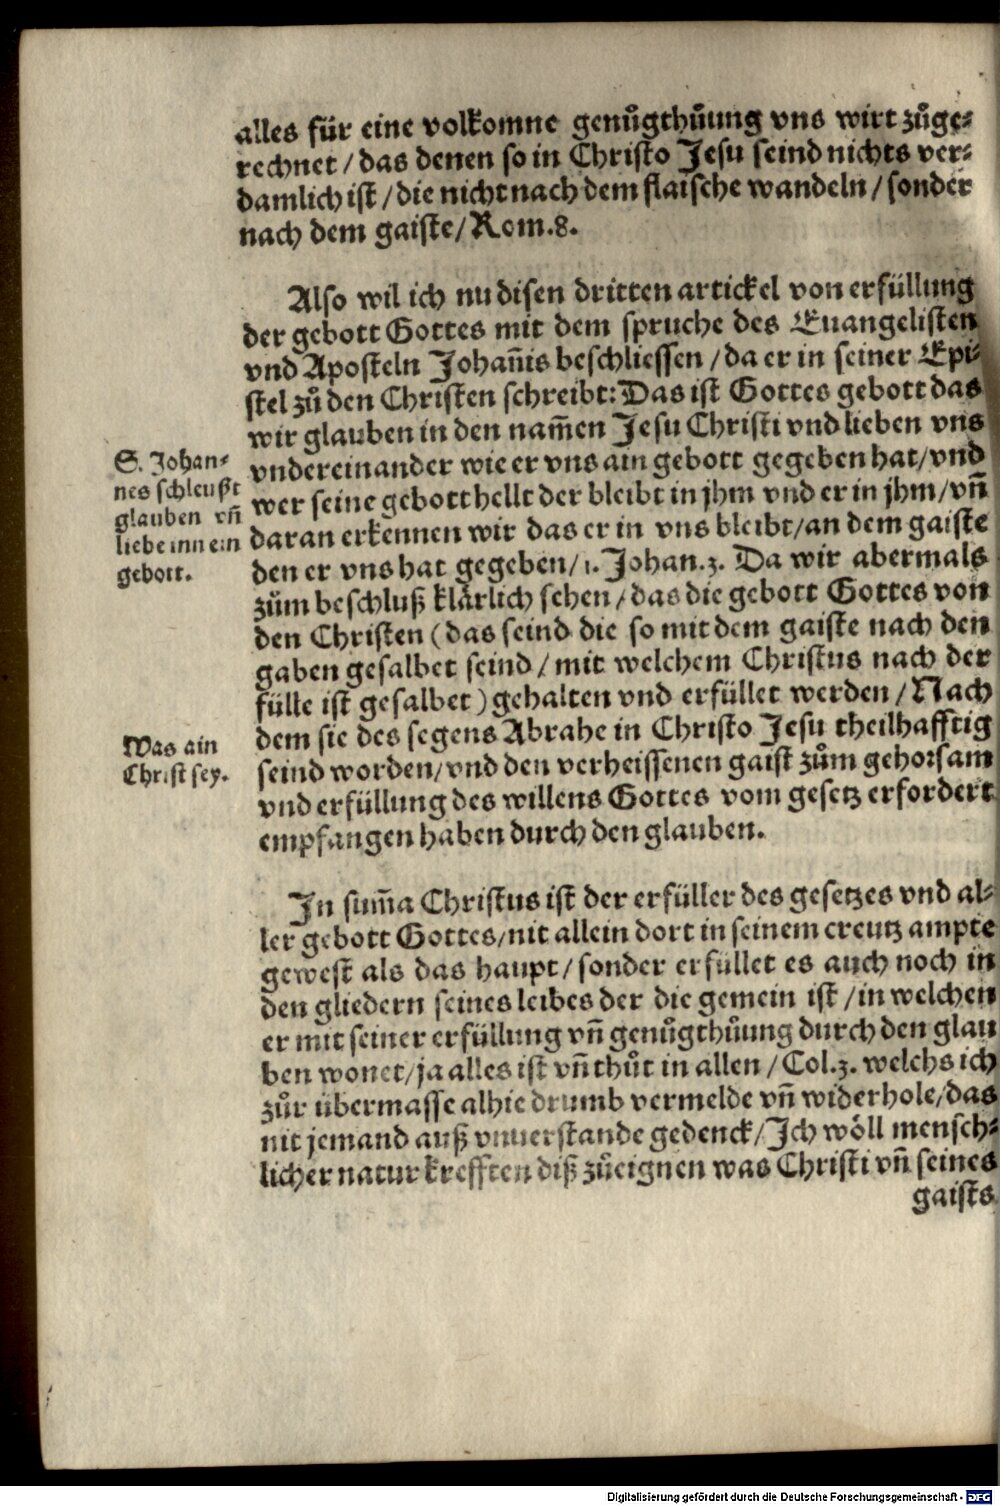 alles für eine volkomne genůgthůung vns wirt zůge⸗
rechnet / das denen so in Christo Jesu seind nichts ver⸗
damlich ist / die nicht nach dem flaische wandeln / sonder
nach dem gaiste / Rom. 8.
Also wil ich nu disen dritten artickel von erfüllung
der gebott Gottes mit dem spruche des Euangelisten
vnd Aposteln Johañis beschliessen / da er in seiner Epi⸗
stel zů den Christen schreibt: Das ist Gottes gebott das
wir glauben in den nam̃en Jesu Christi vnd lieben vns
vndereinander wie er vns ain gebott gegeben hat / vnd
wer seine gebott hellt der bleibt in jhm vnd er in jhm / vñ
daran erkennen wir das er in vns bleibt / an dem gaiste
den er vns hat gegeben / 1. Johan. 3. Da wir abermals
zům beschluß klårlich sehen / das die gebott Gottes von
den Christen (das seind die so mit dem gaiste nach den
gaben gesalbet seind / mit welchem Christus nach der
fülle ist gesalbet) gehalten vnd erfüllet werden / Nach
dem sie des segens Abrahe in Christo Jesu theilhafftig
seind worden / vnd den verheissenen gaist zům gehorsam
vnd erfüllung des willens Gottes vom gesetz erfordert
empfangen haben durch den glauben.
S. Johan⸗
nes schleußt
glauben vñ
liebe inn ein
gebott.
Was ain
Christ sey.
In sum̃a Christus ist der erfüller des gesetzes vnd al⸗
ler gebott Gottes / nit allein dort in seinem creutz ampte
gewest als das haupt / sonder erfüllet es auch noch in
den gliedern seines leibes der die gemein ist / in welchen
er mit seiner erfüllung vñ genůgthůung durch den glau
ben wonet / ja alles ist vñ thůt in allen / Col. 3. welchs ich
zůr übermasse alhie drumb vermelde vñ widerhole / das
nit jemand auß vnuerstande gedenck / Ich wöll mensch⸗
licher natur krefften diß zůeignen was Christi vñ seines
gaists
Digitalisierung gefördert durch die Deutsche Forschungsgemeinschaft - DFG